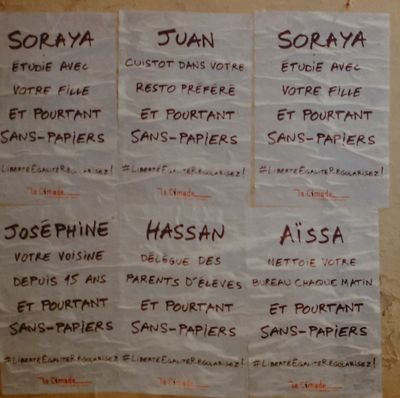 SORAYA
ÉTUDIE AVEC
VOTRE FILLE
ET POURTANT
SANS-PAPIERS
#LIBERTÉÉGALITÉRÉGULARISEZ!
la Cimade
JUAN
CUISTOT DANS VOTRE
RESTO PRÉFÉRÉ
ET POURTANT
SANS-PAPIERS
#LIBERTÉÉGALITÉRÉGULARISEZ!
la Cimade
SORAYA
ÉTUDIE AVEC
VOTRE FILLE
ET POURTANT
SANS-PAPIERS
#LIBERTÉÉGALITÉRÉGULARISEZ!
la Cimade
JOSÉPHINE
VOTRE VOISINE
DEPUIS 15 ANS
ET POURTANT
SANS-PAPIERS
#LIBERTÉÉGALITÉRÉGULARISEZ!
la Cimade
HASSAN
DÉLÉGUÉ DES
PARENTS D'ÉLÈVES
ET POURTANT
SANS-PAPIERS
#LIBERTÉÉGALITÉRÉGULARISEZ!
la Cimade
AÏSSA
NETTOIE VOTRE
BUREAU CHAQUE MATIN
ET POURTANT
SANS-PAPIERS
#LIBERTÉÉGALITÉRÉGULARISEZ!
la Cimade